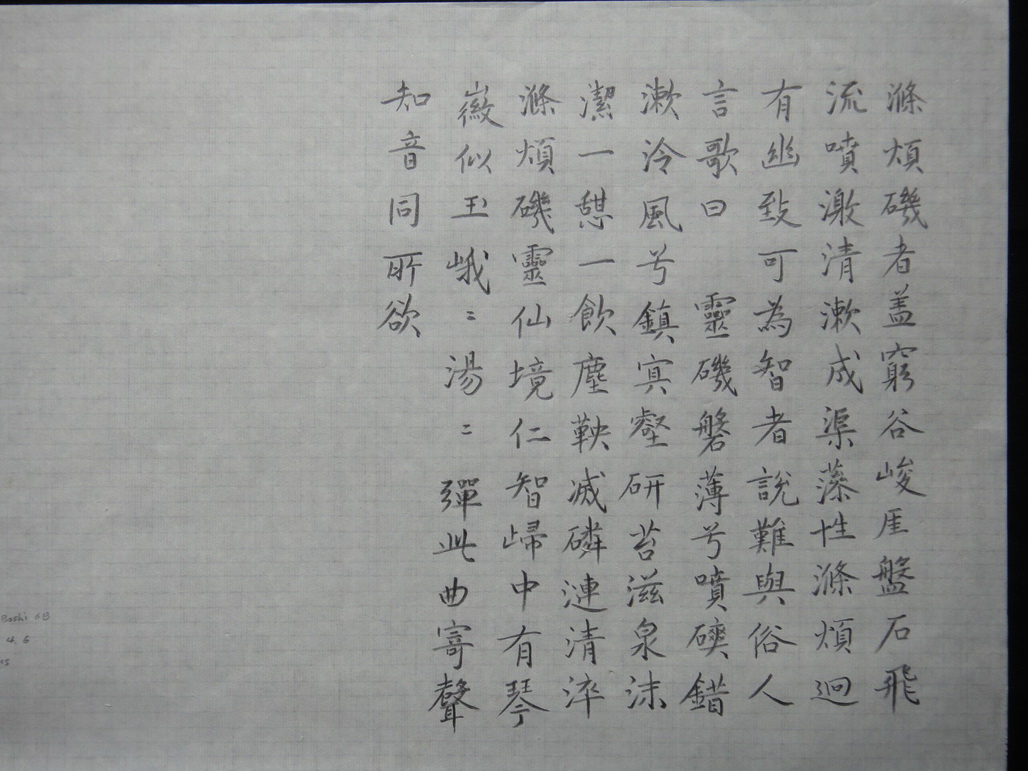 滌煩磯者盖窮谷峻厓盤石飛
流噴激清漱成渠藻性滌煩迴
有幽致可為智者說難與俗人
言歌曰 靈磯磐薄兮噴磢錯
漱泠風兮鎮寘壑研苔滋泉沫
潔一憩一飲塵鞅滅磷漣清淬
滌煩磯靈仙境仁智歸中有琴
徽似玉峨〻湯〻彈此曲寄聲
知音同所欲